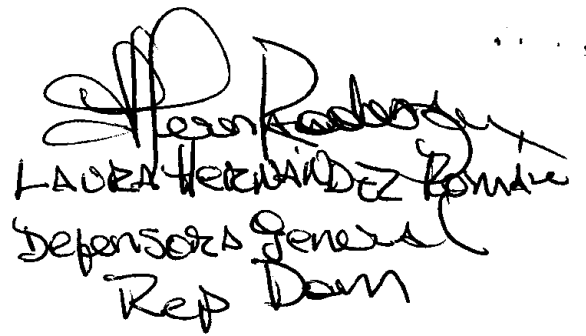 LAURA HERNÁNDEZ Román
Defensora general
Rep Dom